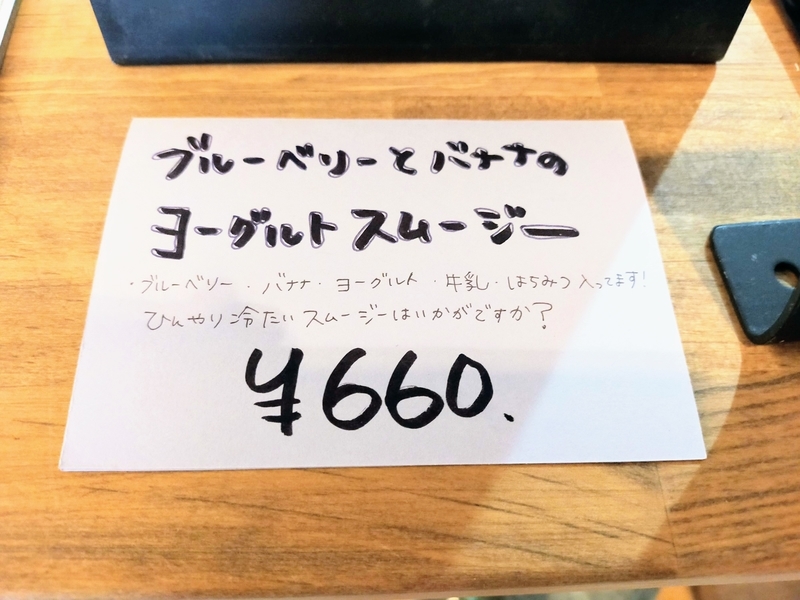 ブルーベリーとバナナの
ヨーグルトスムージー
・ブルーベリー・バナナ・ヨーグルト・牛乳・はちみつ入ってます!
ひんやり冷たいスムージーはいかがですか?
¥660.